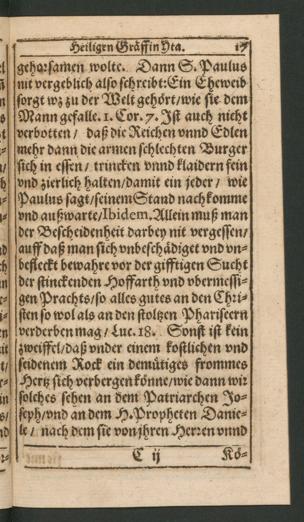 Heiligen Gräffin Yta. 17
gehorsamen wolte. Dann S. Paulus
nit vergeblich also schreibt: Ein Eheweib
sorgt wz zu der Welt gehört / wie sie dem
Mann gefalle. 1. Cor. 7. Ist auch nicht
verbotten / daß die Reichen vnnd Edlen
mehr dann die armen schlechten Burger
sich in essen / trincken vnnd klaidern fein
vnd zierlich halten / damit ein jeder / wie
Paulus sagt / seinem Stand nach komme
vnd außwarte / Ibidem. Allein muß man
der Bescheidenheit darbey nit vergessen /
auff daß man sich vnbeschädiget vnd vn-
befleckt bewahre vor der gifftigen Sucht
der stinckenden Hoffarth vnd vbermessi-
gen Prachts / so alles gutes an den Chri-
sten so wol als an den stoltzen Phariseern
verderben mag / Luc. 18. Sonst ist kein
zweiffel / daß vnder einem kostlichen vnd
seidenem Rock ein demütiges frommes
Hertz sich verbergen könne / wie dann wir
solches sehen an dem Patriarchen Jo-
seph / vnd an dem H. Propheten Danie-
le / nach dem sie von jhren Herren vnnd
C ij Kö-